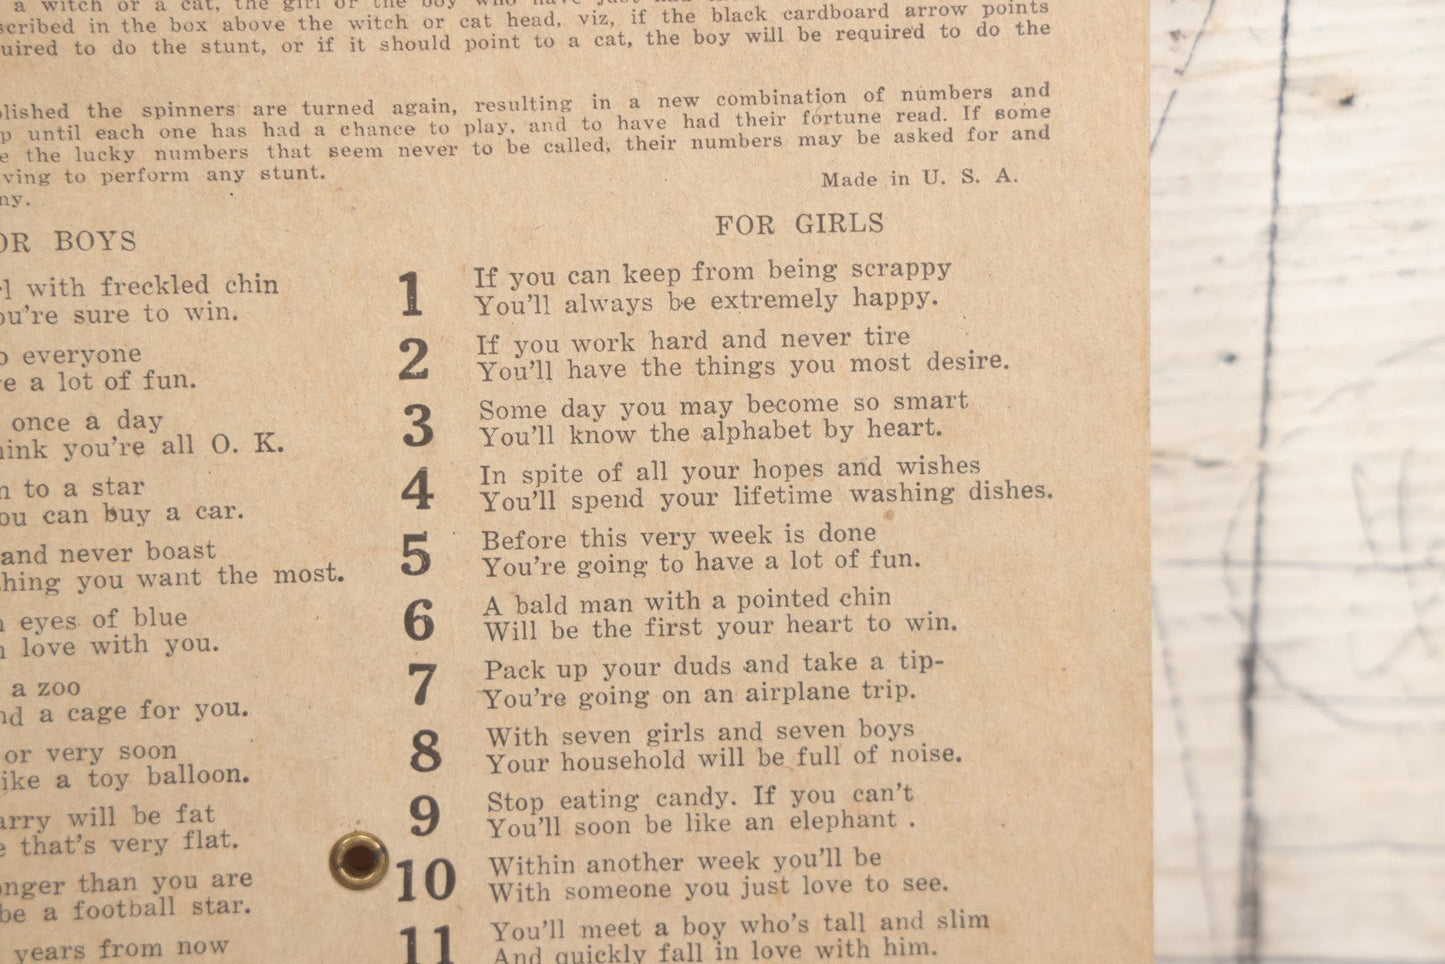 a witch or a cat, the girl or the boy who have just had
scribed in the box above the witch or cat head, viz, if the black cardboard arrow points
uired to do the stunt, or if it should point to a cat, the boy will be required to do the
lished the spinners are turned again, resulting in a new combination of numbers and
p until each one has had a chance to play, and to have had their fortune read. If some
e the lucky numbers that seem never to be called, their numbers may be asked for and
ving to perform any stunt.
ny.
Made in U. S. A.
OR BOYS
l with freckled chin
ou're sure to win.
o everyone
re a lot of fun.
once a day
hink you're all O. K.
n to a star
ou can buy a car.
and never boast
thing you want the most.
n eyes of blue
n love with you.
a zoo
nd a cage for you.
or very soon
ike a toy balloon.
arry will be fat
e that's very flat.
onger than you are
be a football star.
years from now
FOR GIRLS
1 If you can keep from being scrappy
You'll always be extremely happy.
2 If you work hard and never tire
You'll have the things you most desire.
3 Some day you may become so smart
You'll know the alphabet by heart.
4 In spite of all your hopes and wishes
You'll spend your lifetime washing dishes.
5 Before this very week is done
You're going to have a lot of fun.
6 A bald man with a pointed chin
Will be the first your heart to win.
7 Pack up your duds and take a tip-
You're going on an airplane trip.
8 With seven girls and seven boys
Your household will be full of noise.
9 Stop eating candy. If you can't
You'll soon be like an elephant .
10 Within another week you'll be
With someone you just love to see.
11 You'll meet a boy who's tall and slim
And quickly fall in love with him.